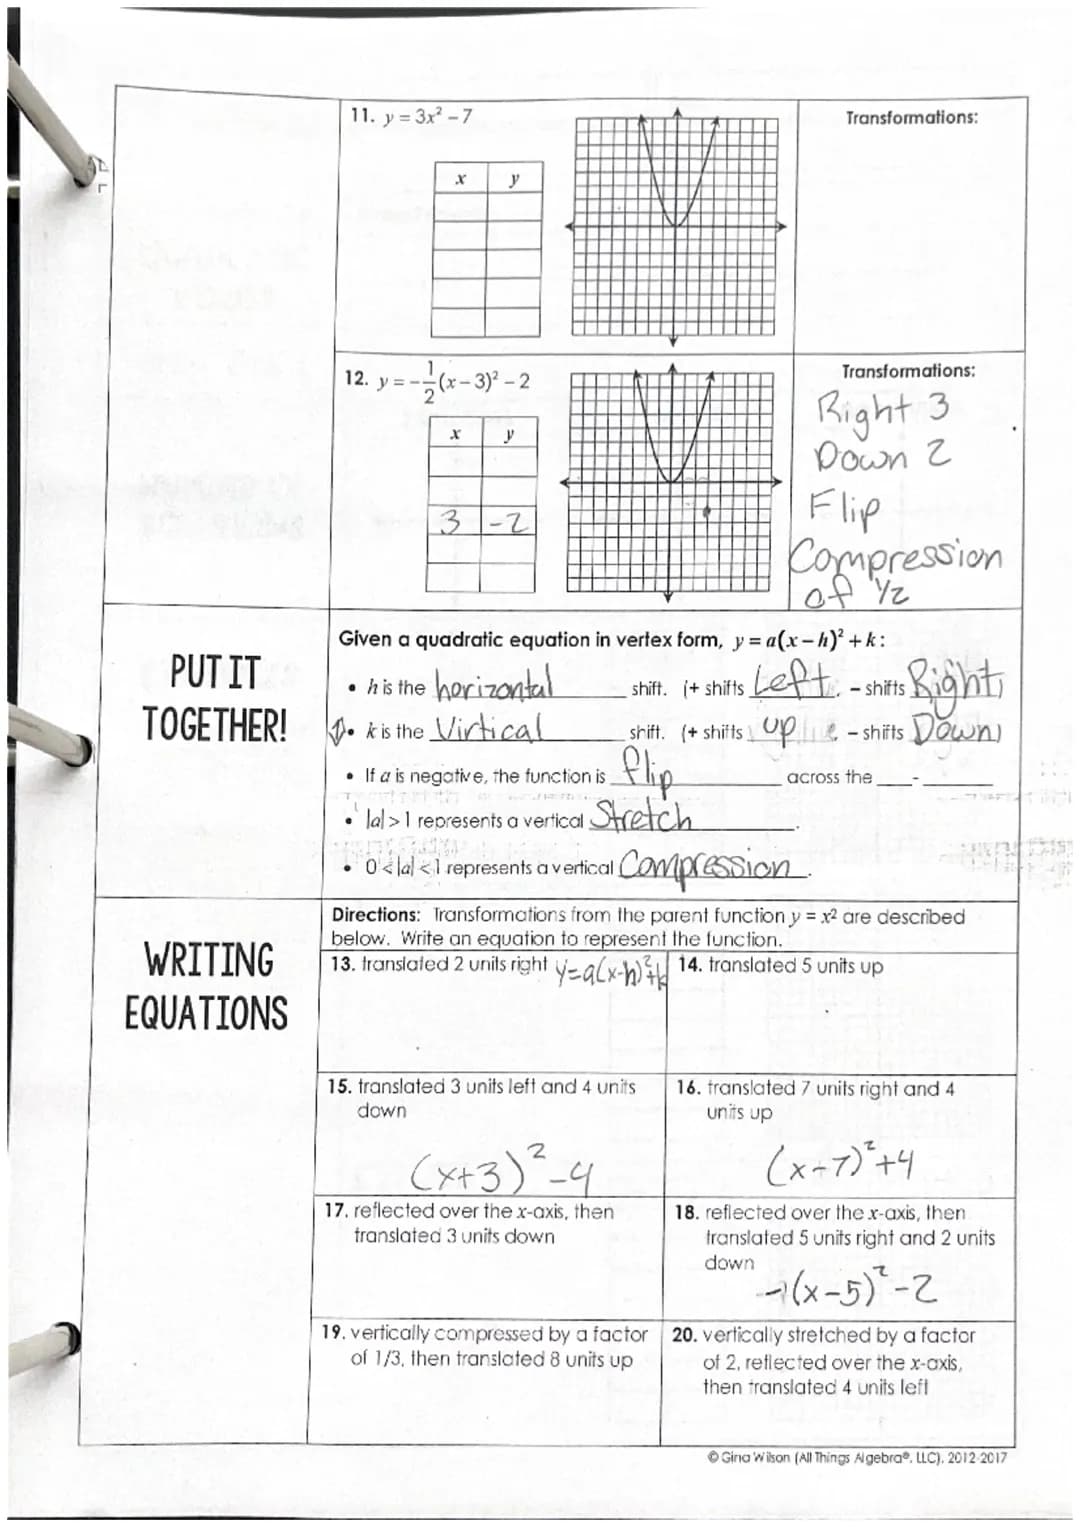 11. y = 3x² − 7
Transformations:
x y
12. y = −1/2(x − 3)² − 2
Transformations:
x y
3 -2
Right 3
Down 2
Flip
Compression
of 1/2
PUT IT
TOGETHER!
Given a quadratic equation in vertex form, y = a(x − h)² + k:
• h is the horizontal shift. (+ shifts Left. − shifts Right)
• k is the Virtical shift. (+ shifts up − shifts Down)
• If a is negative, the function is flip across the ____-____
• |a| > 1 represents a vertical Stretch.
• 0 < |a| < 1 represents a vertical Compression.
WRITING
EQUATIONS
Directions: Transformations from the parent function y = x² are described
below. Write an equation to represent the function.
13. translated 2 units right y=a(x-h)²+k
14. translated 5 units up
15. translated 3 units left and 4 units
down
(x+3)²-4
16. translated 7 units right and 4
units up
(x-7)²+4
17. reflected over the x-axis, then
translated 3 units down
18. reflected over the x-axis, then
translated 5 units right and 2 units
down
-(x-5)²-2
19. vertically compressed by a factor
of 1/3, then translated 8 units up
20. vertically stretched by a factor
of 2, reflected over the x-axis,
then translated 4 units left
© Gina Wilson (All Things Algebra®, LLC), 2012-2017